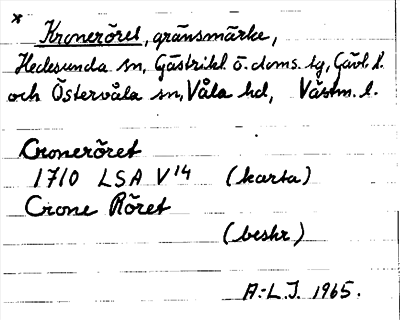 * Kroneröret, gränsmärke,
Hedesunda sn, Gästrikl. ö. doms. tg, Gävl. l.
och Östervåla sn, Våla hd, Västm. l.
Croneröret
1710 LSA V14 (karta)
Crone Röret
(beskr)
A.-L. J. 1965.